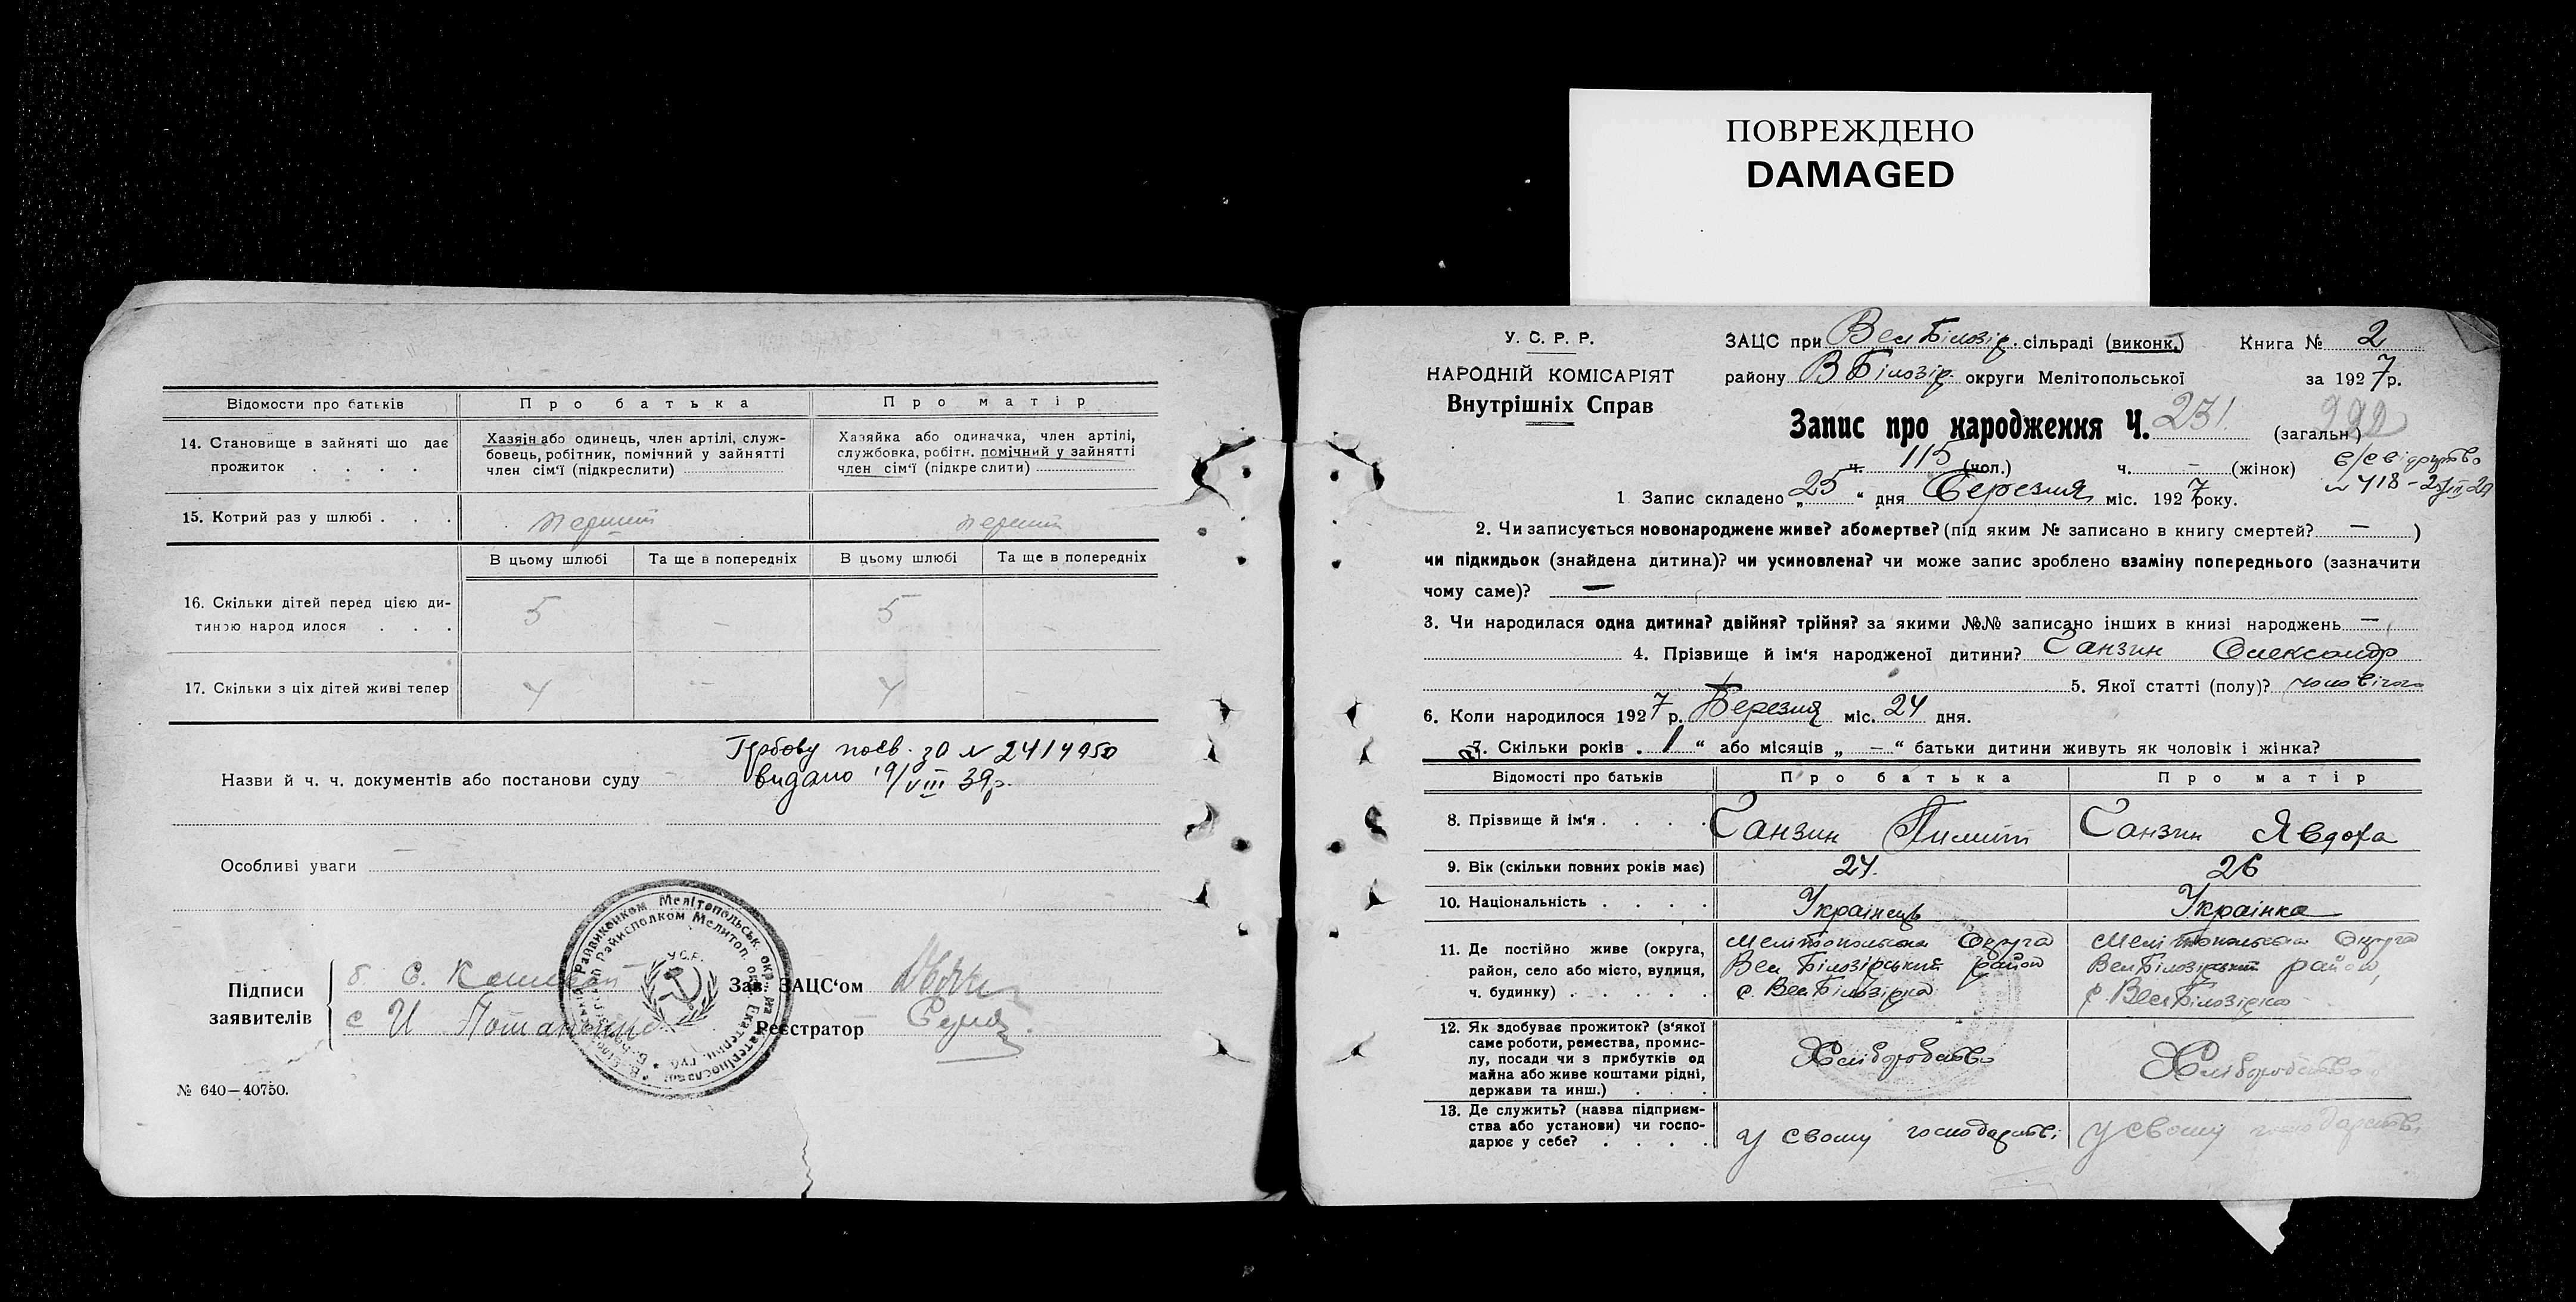 ПОВРЕЖДЕНО
DAMAGED
Відомости про батьків
Про батька
Про матір
14. Становище в зайняті що дає
прожиток . . . .
Хазяін або одинець, член артілі, служ-
бовець, робітник, помічний у зайнятті
член сім'ї (підкреслити)
Хазяйка або одиначка, член артілі,
службовка, робітн. помічний у зайнятті
член сім'ї (підкреслити)
15. Котрий раз у шлюбі . . .
перший
перший
В цьому шлюбі
Та ще в попередніх
В цьому шлюбі
Та ще в попередніх
16. Скільки дітей перед цією ди-
тиною народилося . . .
5 – 5 –
17. Скільки з ціх дітей живі тепер
4 – 4 –
Гербову посв. ЗО № 2414950
Назви й ч. ч. документів або постанови суду
видано 19/VIII 39р.
Особливі уваги
Підписи
заявителів
б. С.
с И
Зав. ЗАЦС'ом
Реєстратор
У.С.Р.
№ 640—40750.
У. С. Р. Р.
НАРОДНІЙ КОМІСАРІЯТ
Внутрішніх Справ
ЗАЦС при Вел Білозір. сільраді (виконк.) Книга № 2
району В Білозір округи Мелітопольської за 1927 р.
Запис про народження Ч. 231. (загальн)
ч. 115 (чол.) ч. – (жінок)
1 Запис складено „25“ дня Березня міс. 1927 року.
2. Чи записується новонароджене живе? або мертве? (під яким № записано в книгу смертей? — )
чи підкидьок (знайдена дитина)? чи усиновлена? чи може запис зроблено взаміну попереднього (зазначити
чому саме)? —
3. Чи народилася одна дитина? двійня? трійня? за якими №№ записано інших в книзі народжень —
4. Прізвище й ім'я народженої дитини? Санзин Олександр
5. Якої статті (полу)? чоловічого
6. Коли народилося 1927 р. Березня міс. 24 дня.
7. Скільки років „1“ або місяців „–“ батьки дитини живуть як чоловік і жінка?
Відомості про батьків
Про батька
Про матір
8. Прізвище й ім'я . . . .
Санзин Пилип
Санзин Явдоха
9. Вік (скільки повних років має)
24.
26
10. Національність . . . .
Українець
Українка
11. Де постійно живе (округа,
район, село або місто, вулиця,
ч. будинку) . . . . .
Мелітопольська Округа
Вел Білозірський район
с. Вел Білозірка
Мелітопольська Округа
Вел Білозірський район,
с. Вел Білозірка
12. Як здобуває прожиток? (з'якої
саме роботи, ремества, промис-
лу, посади чи з прибутків од
майна або живе коштами рідні,
держави та инш.) . . .
Хліборобство
Хліборобство
13. Де служить? (назва підприєм-
ства або установи) чи госпо-
дарює у себе? . . . .
у свому господарстві
у свому господарстві